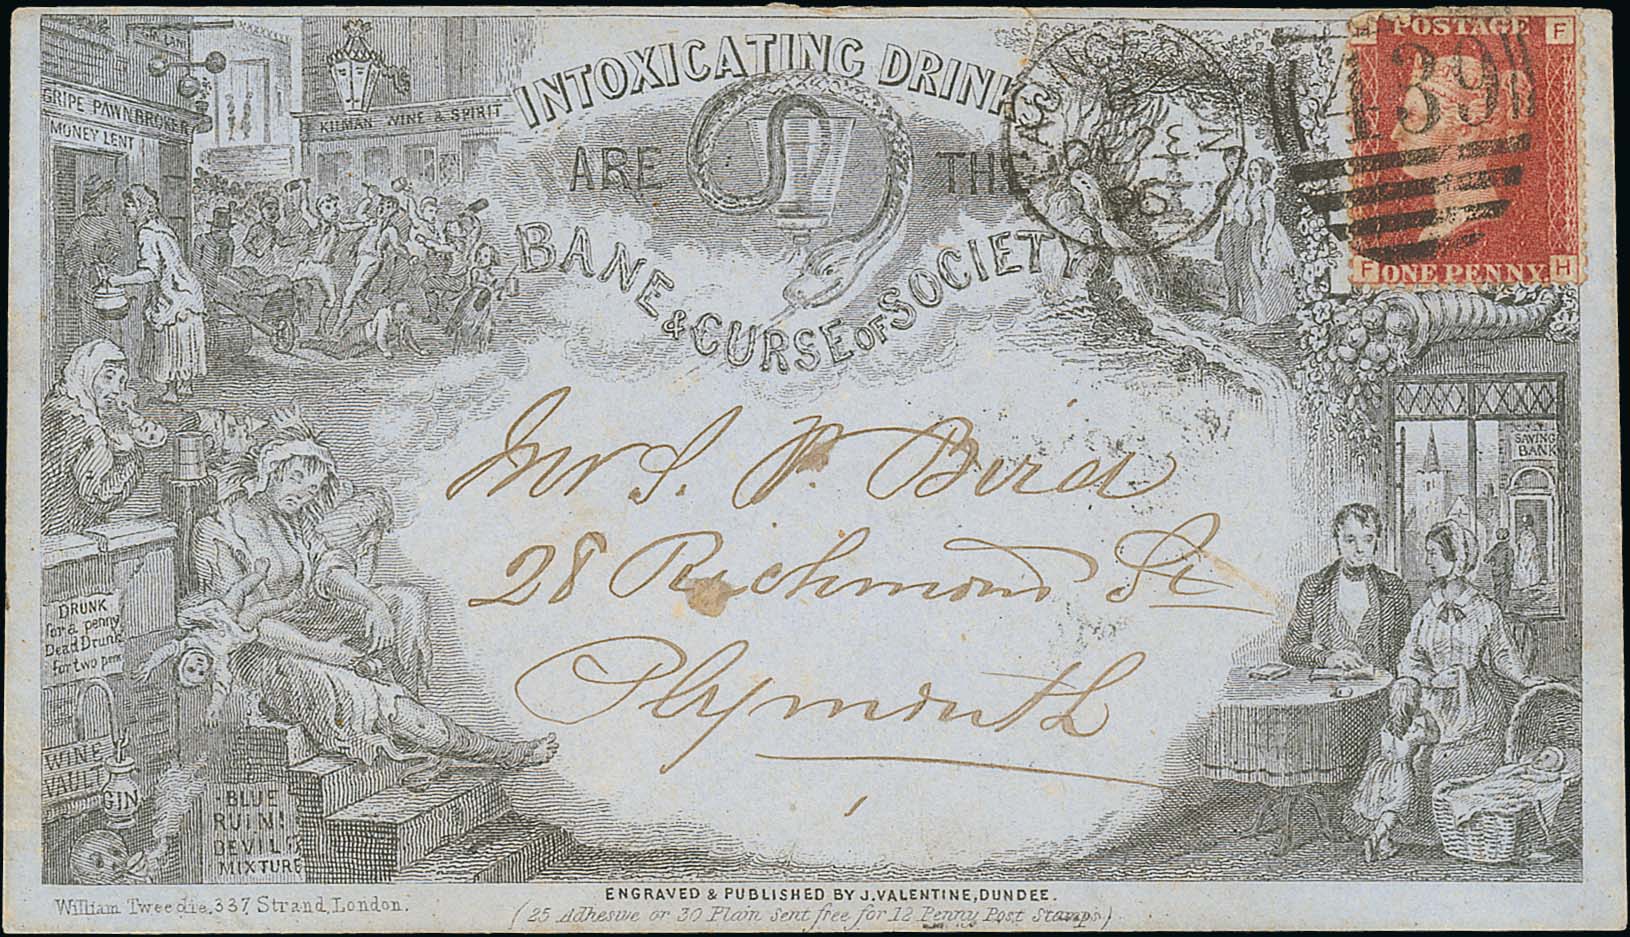 GRIPE PAWNBROKER
MONEY LENT
KILMAN WINE & SPIRIT
INTOXICATING DRINKS
ARE THE
BANE & CURSE OF SOCIETY
POSTAGE
F
139
ONE PENNY
F H
SAVING
BANK
Mr S. P. Bird
28 Richmond St
Plymouth
DRUNK
for a penny
Dead Drunk
for two pen
WINE
VAULT
GIN
BLUE
RUIN!
DEVILS
MIXTURE
ENGRAVED & PUBLISHED BY J. VALENTINE, DUNDEE.
William Tweedie, 337, Strand, London.
(25 Adhesive or 30 Plain sent free for 12 Penny Post Stamps.)